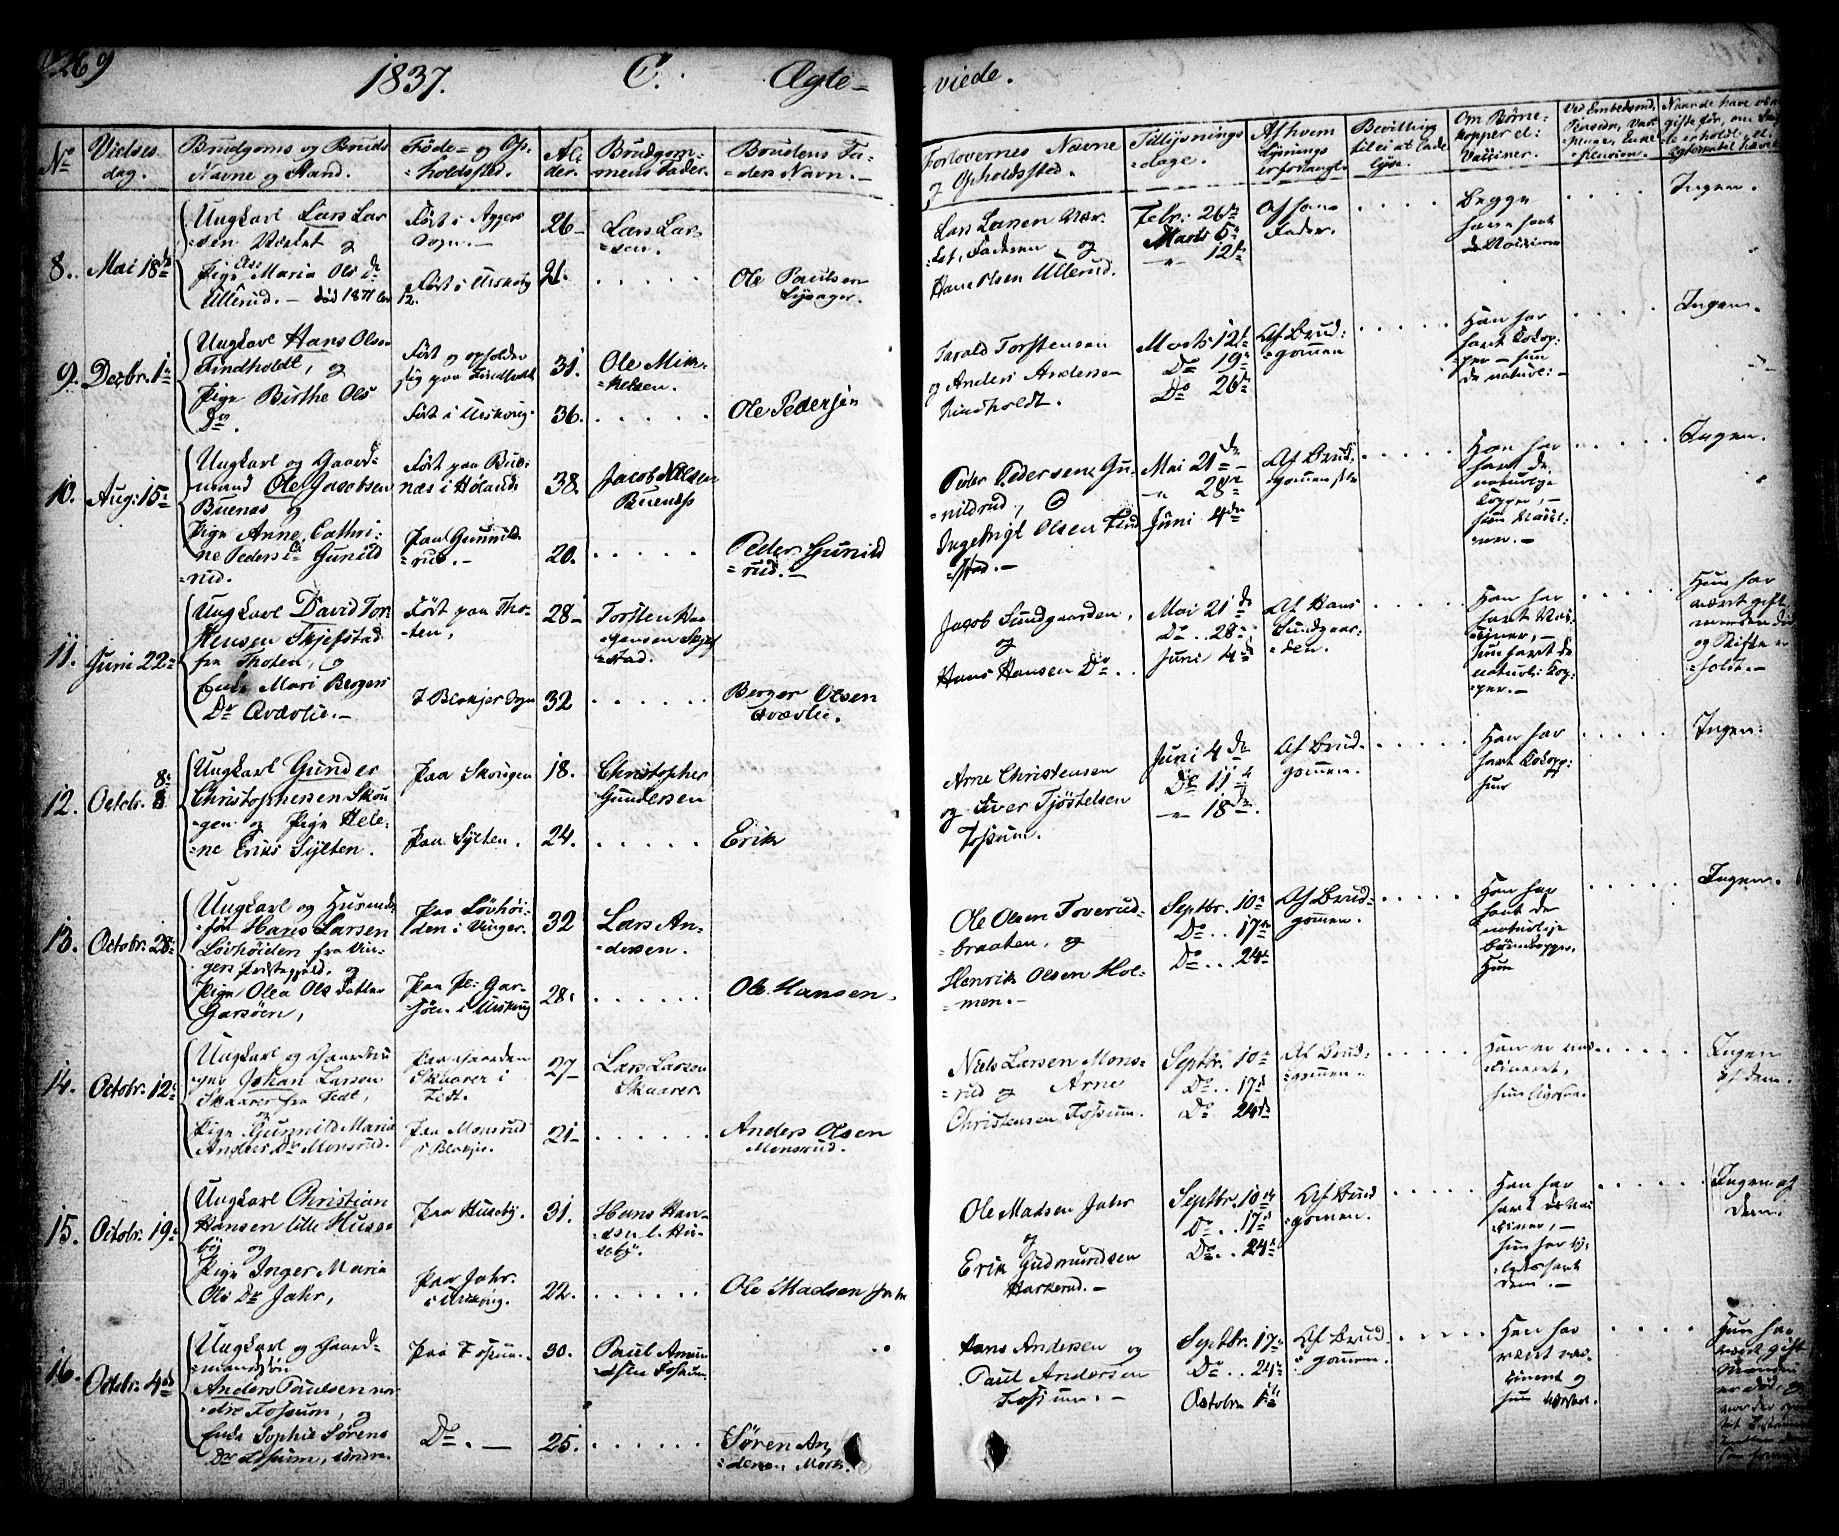 269
1837. C. Ægte-
-viede.
No
Vielses
dag.
Brudgoms og Bruds
Navne og Stand.
Føde- og Op-
-holdssted.
Al-
der.
Brudgom-
mens Fader.
Brudens Fa-
-ders Navn.
Forlovernes Navne
og Opholdssted.
Tillysnings
-dage.
Af hvem
Lysnings
er forlangt
Bevilling
til ei at lade
lyse.
Om Børne-
kopper el:
Vaccinen.
8. Mai 18de
Ungkarl Lars Lar
sen Værket og
Pige Else Maria Ols dr
Ullerud. - død 1871
Født i Agger
sogn.
Født i Urskoug
26
21.
Lars Lar-
-sen.
Ole Paulsen
Lars Larsen Vær-
-ket, Faderen, og
Hans Olsen Ullerud.
Febr: 26de
Marts 5te
12te
Af hans
Fader.
Begge
have havt
Ingen.
9. Decbr. 1te
Ungkarl Hans Olsen
Findholdt, og
Pige Birthe Ols
Do.
Født og opholder
sig paa Findholdt
Født i Urskoug
31.
36.
Ole Mik-
-kelsen.
Ole Pedersen
Tarald Torstensen
og Anders Andersen
Findholdt.
Marts 12te
Do 19de
Do 26de
Af Brud-
-gommen
Han har
havt Kokop-
per - hun
de naturl: -
Ingen.
10. Aug: 15de
Ungkarl og Gaard-
mand Ole Jacobsen
Buenæs og
Pige Anne Cathri-
ne Peders Dr Gunild
-rud.
Født paa Bue-
næs i Høland
Paa Gunnild
-rud.
38.
20.
Jacob Nilsen
Buenæs
Peder Gunild
-rud.
Peder Pedersen Gu-
-nildrud, og
Ingebrigt Olsen Find
-stad.
Mai 21de
28de
Juni 4de
Af Brud-
gommen
Han har
havt de
naturlige
Kopper, -
hun Vacci-
-nen.
Ingen.
11. Juni 22de
Ungkarl David Tor
stensen Skjefstad
fra Thoten, og
Enke Mari Bergers
Dr Qvævlie.
Født paa Tho-
-ten,
I Blakjer Sogn
28
32
Torsten Haa
-gensen Skjef
-stad.
Berger Olsen
Qvævlie.
Jacob Sundgaarden,
og
Hans Hansen Do.
Mai 21de
Do 28de
Juni 4de
Af Hans
Sundgaar-
-den.
Han har
havt Vac-
-ciner, -
hun havt de
naturl: Kop-
-per.
Hun har
været gift
manden død
og Skifte er
-holdt.
12. Octobr. 8de
Ungkarl Gunder
Christophersen Skou
-gen og Pige Hele-
ne Eriks Sylten.
Paa Skougen
Paa Sylten.
18.
24.
Christopher
Gundersen
Erik
Arne Christensen
og Siver Tjøstelsen
Fossum.
Juni 4de
Do 11te
18de
Af Brud-
gommen.
Han har
havt Kokopp:
hun
Ingen.
13. Octobr. 28de
Ungkarl og Husmds
søn Hans Larsen
Løvhøiden fra Vin-
gers Præstegjeld, og
Pige Olea Ols Datter
Garsøen,
Paa Løvhøi-
den i Vinger.
Paa Pl: Gar-
søen i Urskoug
32
28.
Lars An-
-dersen.
Ole Hansen.
Ole Olsen Toverud-
braaten, og
Henrik Olsen Hol-
-men.
Septbr. 10de
Do.. 17de
Do... 24de
Af Brud-
gommen.
Han har
havt de
naturlige
Børnekopper,
Hun
Ingen.
14. Octobr. 12te
Ungkarl og Gaardbru
ger Johan Larsen
Skaarer fra Fedt,
og
Pige Gunnild Maria
Anders Dr Monsrud.
Paa Gaarden
Skaarer i
Fedt.
Paa Monsrud
i Blakjer.
27
21
Lars Larsen
Skaarer.
Anders Olsen
Monsrud.
Niels Larsen Mons-
-rud og Arne
Christensen Fossum.
Septbr. 10de
Do.. 17de
Do 24de
Af Brud-
gommen.
Han er vac-
-cineret,
Ingen
af dem.
15. Octobr. 19de
Ungkarl Christian
Hansen lille Huse-
bÿ og
Pige Inger Maria
Ols Dr Jahr,
Paa Husebÿ.
Paa Jahr.
i Urskoug.
31.
22.
Hans Han-
-sen l. Hu-
sebÿ.
Ole Madsen Jahr
Ole Madsen Jahr
og
Erik Gudmundsen
Harkerud.
Septbr. 10de
Do.. 17de
Do.. 24de
Af Brud
gommen.
Han har
havt Vac
ciner, -
hun har li-
-geledes havt
dem.
Ingen af
dem.
16. Octobr. 4de
Ungkarl og Gaard-
mandssøn
Anders Paulsen nor
-dre Fossum, og
Enke Sophie Sørens
Dr Fossum, søndre.
Paa Fossum.
Do.
30.
25.
Paul Amun
-dsen Fossum.
Søren An-
-dersen Mork.
Hans Andersen og
Paul Andersen
Fossum.
Septbr. 17de
Do.. 24de
Octobr. 1ste
Af Brud-
-gommen.
Han har
været vac-
cineret og
hun
Hun har
været gift
Manden
er død,